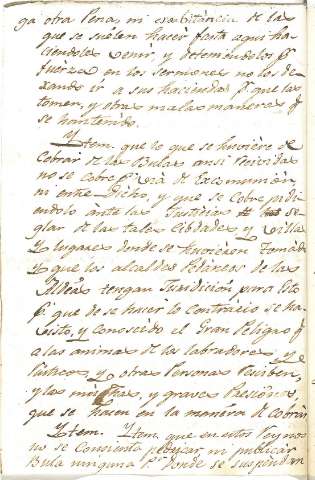 ga otra Pena, ni exorbitancia de las
que se suelen hacer fasta aqui ha
ciendoles venir, y deteniendolos p.r
fuerza en los sermones no los de
xando ir a sus haciendas p.a que las
tomen, y otras malas maneras q.e
se han tenido.
Ytem. que lo que se huviere de
Cobrar de las Bulas ansi Recividas
no se cobre p.r via de Excomunion
ni entre Dicho, y que se cobre pidi
endolo ante las Justicias se
glar de las tales Cibdades y Villas
y Lugares donde se huvieren tomado
Y que los alcaldes Pedaneos de las
Aldeas tengan Juridicion para esto
p.r que de se hacer lo contrario se ha
visto, y conoscido el Gran Peligro q.e
a las animas de los labradores, y
Rusticos, y otras Personas Reciben,
y las muchas, y graves Presiones
que se hacen en la manera de cobrar
Ytem. Ytem, que en estos Reynos
no se Consienta predicar ni publicar
Bula ninguna p.r donde se suspendan